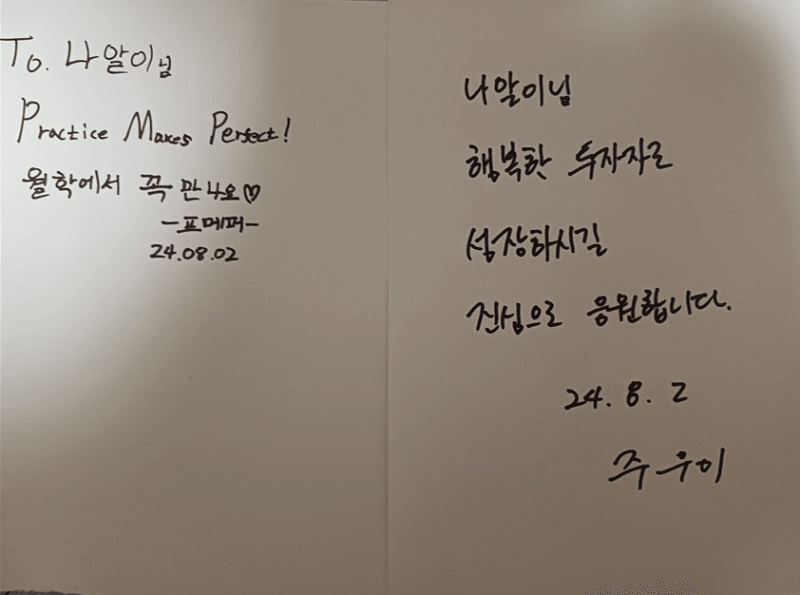 To. 나알이님
Practice Makes Perfect!
월학에서 꼭 만나요♡
-프메퍼-
24.08.02
나알이님
행복한 투자자로
성장하시길
진심으로 응원합니다.
24. 8. 2
주우이